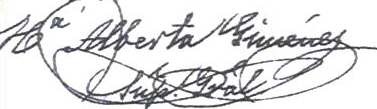 Mª Alberta Giménez
Sup. Gral